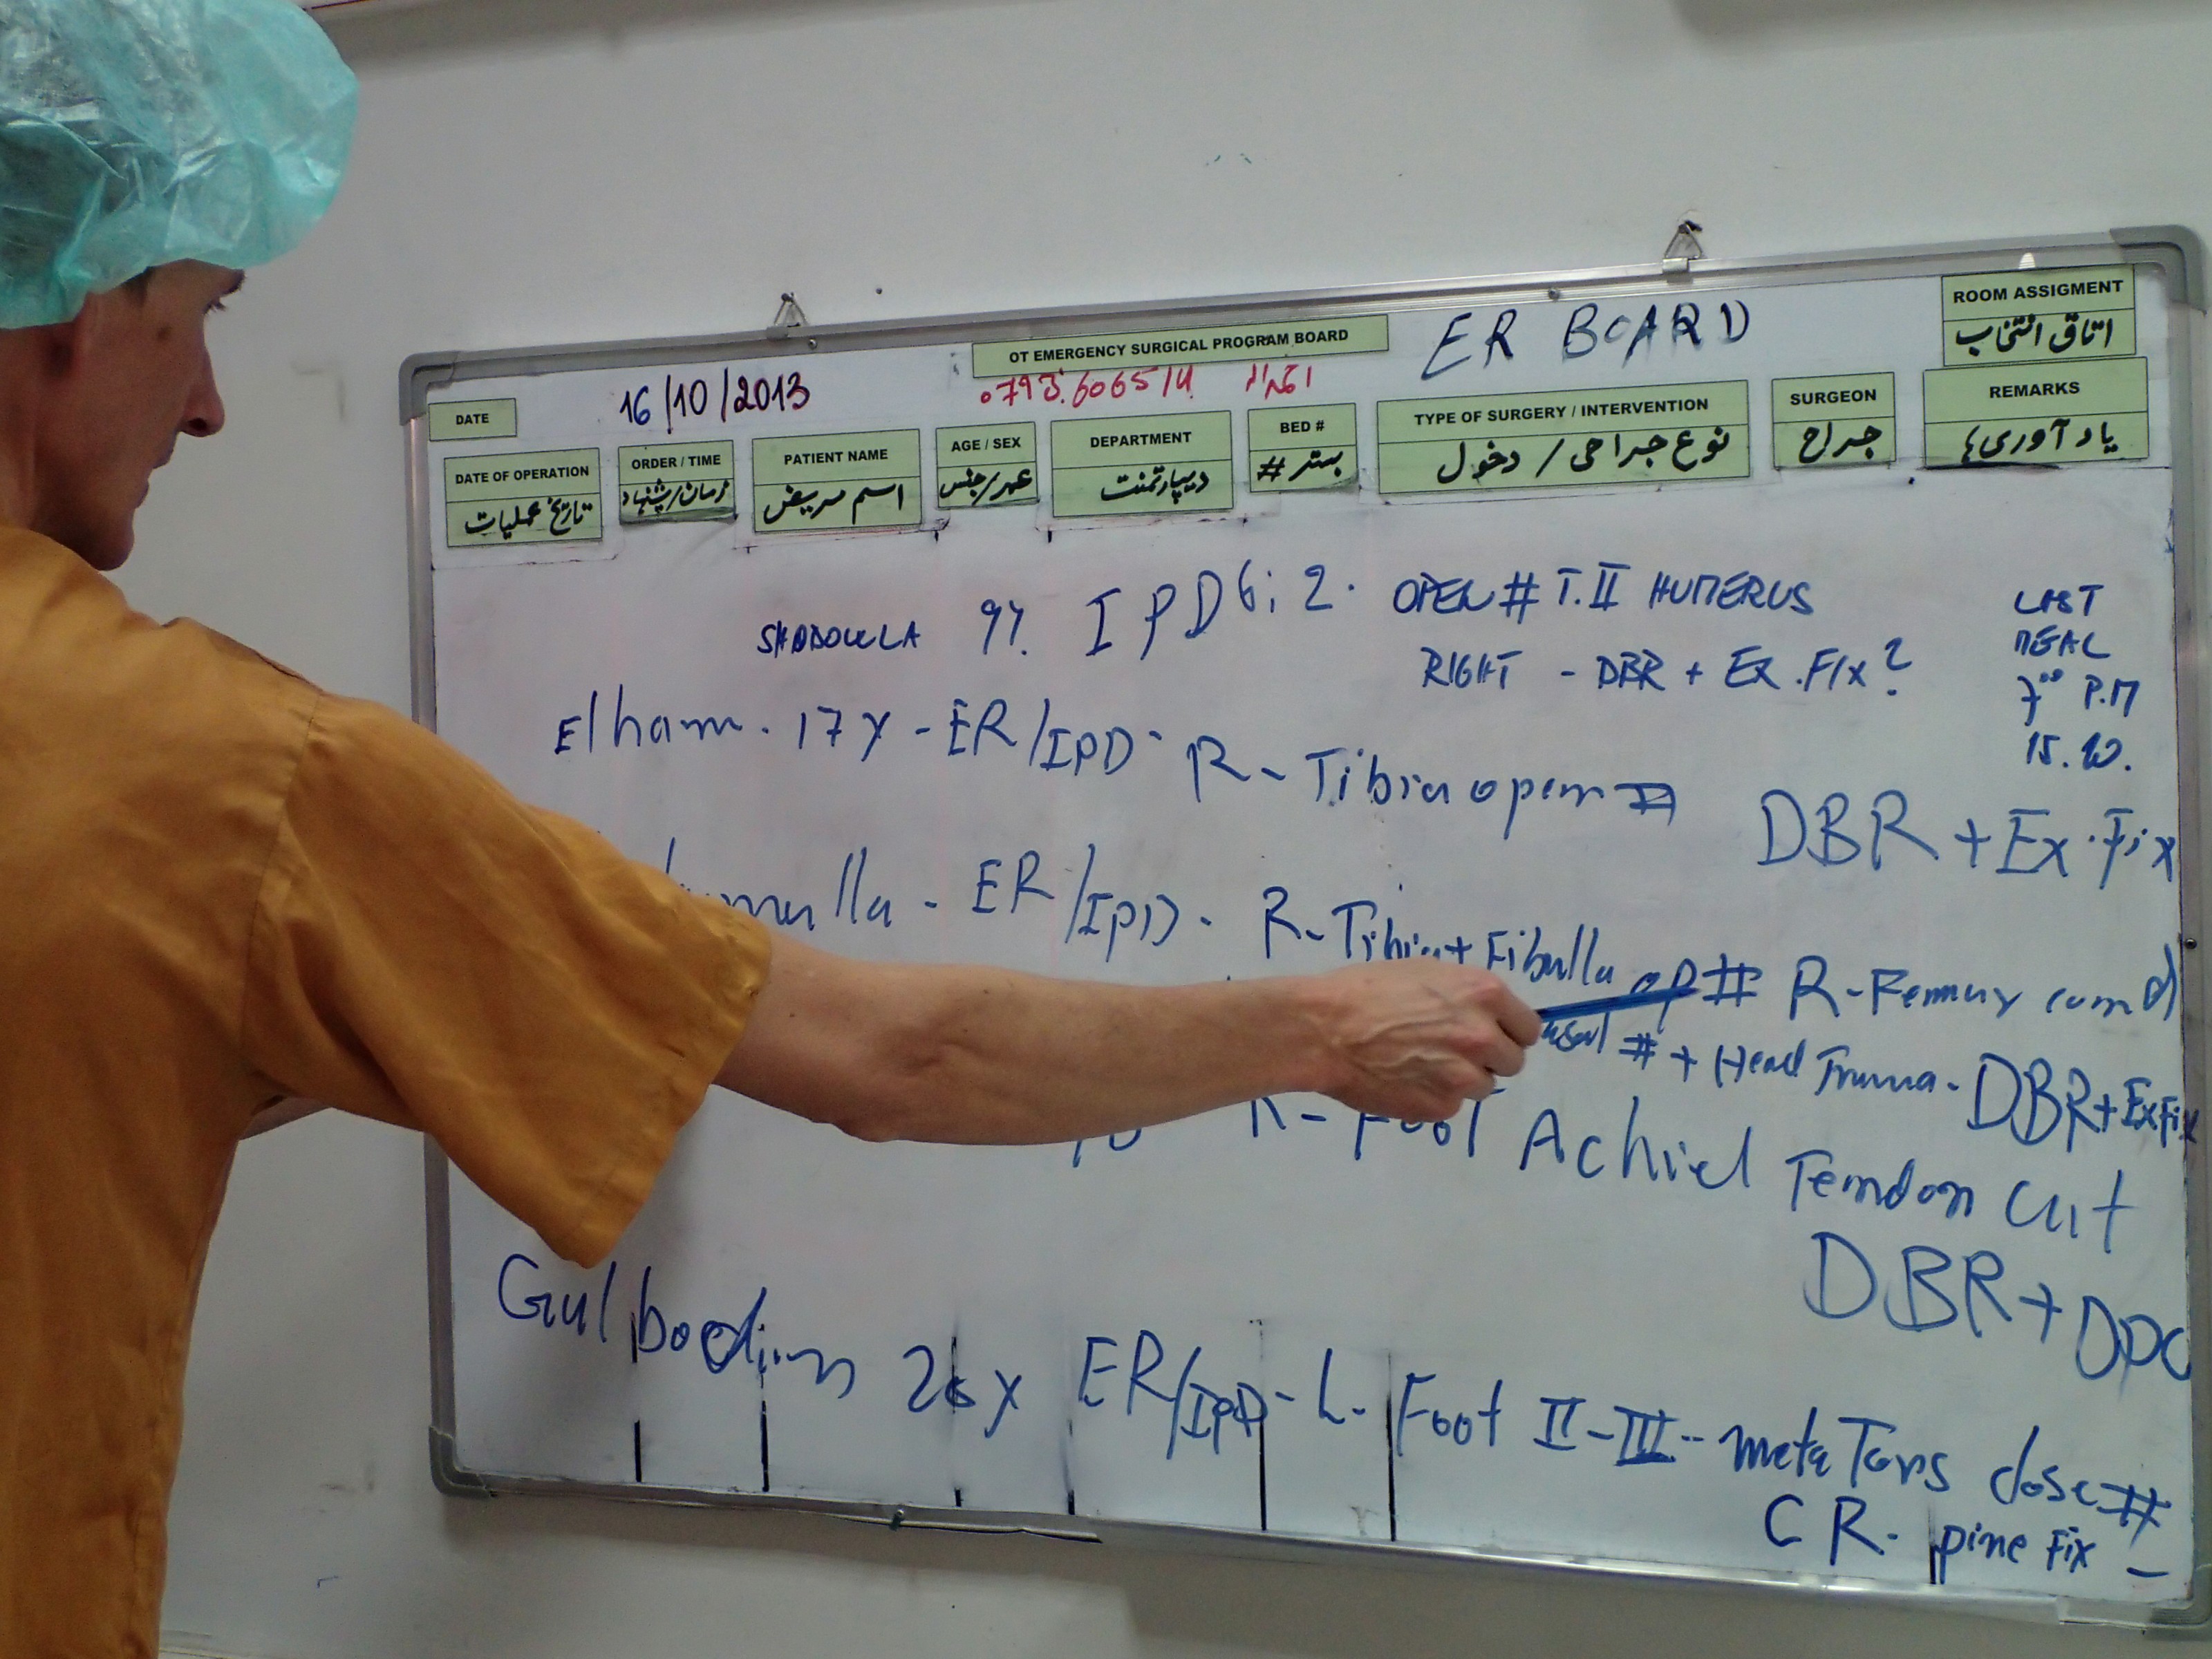 ROOM ASSIGMENT
اتاق انتخاب
OT EMERGENCY SURGICAL PROGRAM BOARD
ER BOARD
DATE
16/10/2013
DATE OF OPERATION
تاریخ عملیات
ORDER / TIME
زمان/پیشنهاد
PATIENT NAME
اسم مریض
AGE / SEX
عمر/جنس
DEPARTMENT
دیپارتمنت
BED #
بستر #
TYPE OF SURGERY / INTERVENTION
نوع جراحی / دخول
SURGEON
جراح
REMARKS
یاد آوری‌ها
9Y. IPD 6; 2. OPEN # T.II HUMERUS
RIGHT - DBR + EX.FIX?
LAST
MEAL
7°° P.M
15.10.
Elham. 17 y - ER/IPD - R - Tibia open #
DBR + Ex.Fix
ER/IPD. R-Tibia + Fibulla op # R-Femur
# + Head Truma. DBR + ExFix
R - Foot Achiel Tendon cut
DBR + DPC
Gulboddin 26 y ER/IPD - L. Foot II-III - meta Tars close #
CR. pine Fix